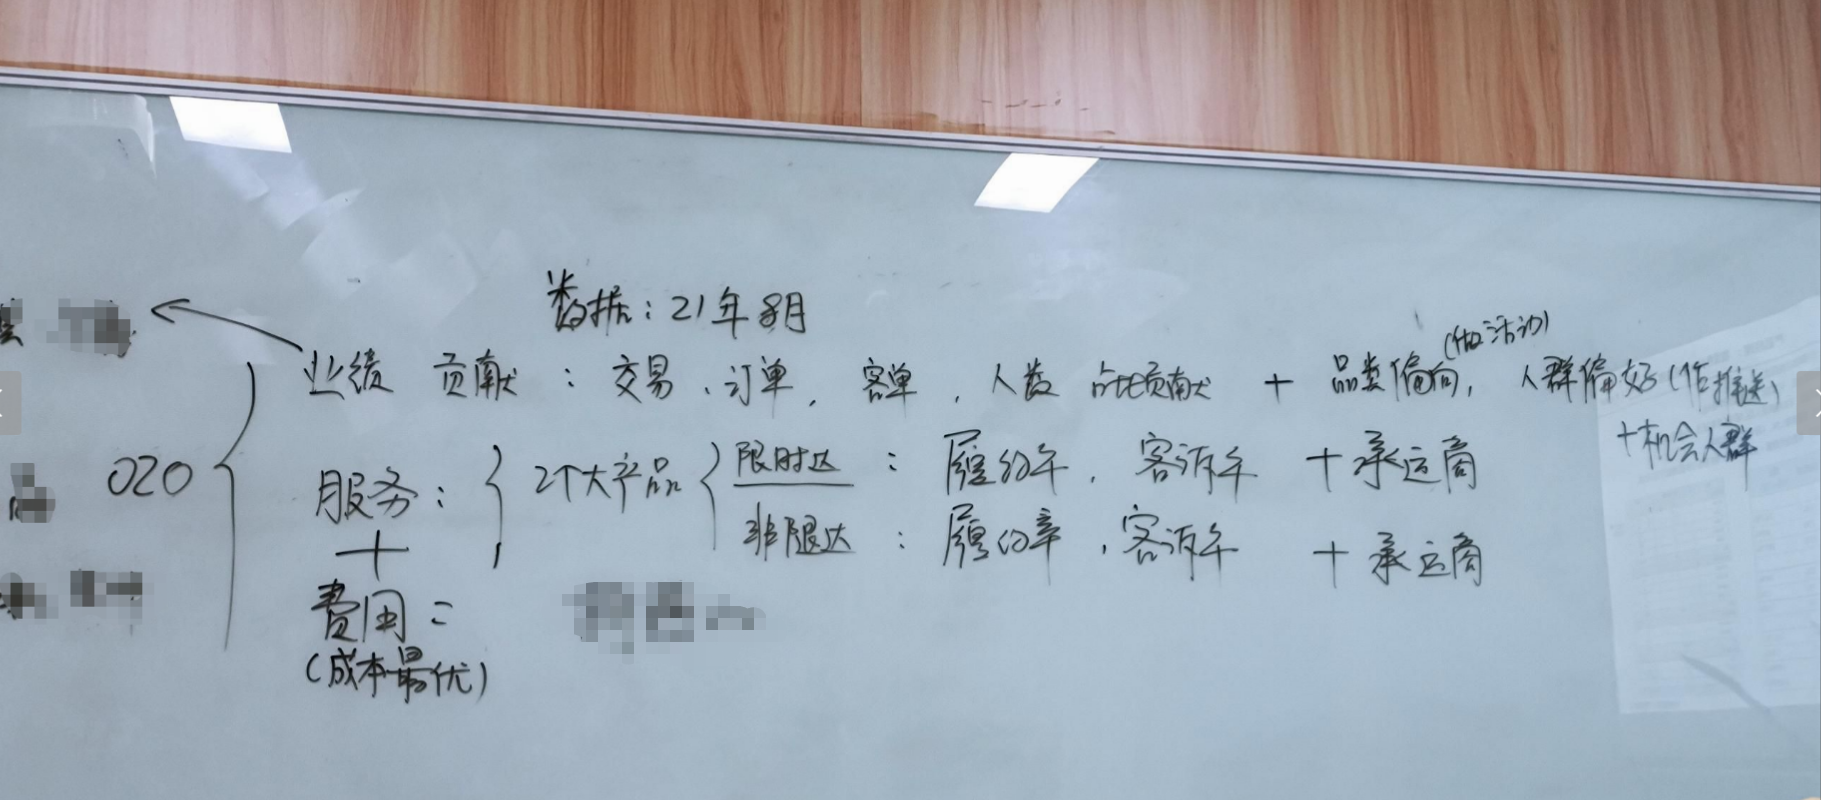 数据：21年8月
(做活动)
业绩 贡献：交易、订单，客单，人数 占比贡献 + 品类偏向，人群偏好(作推送)
+机会人群
O2O
服务：2个大产品
限时达：履约率，客诉率 +承运商
非限达：履约率，客诉率 +承运商
+
费用：
(成本最优)